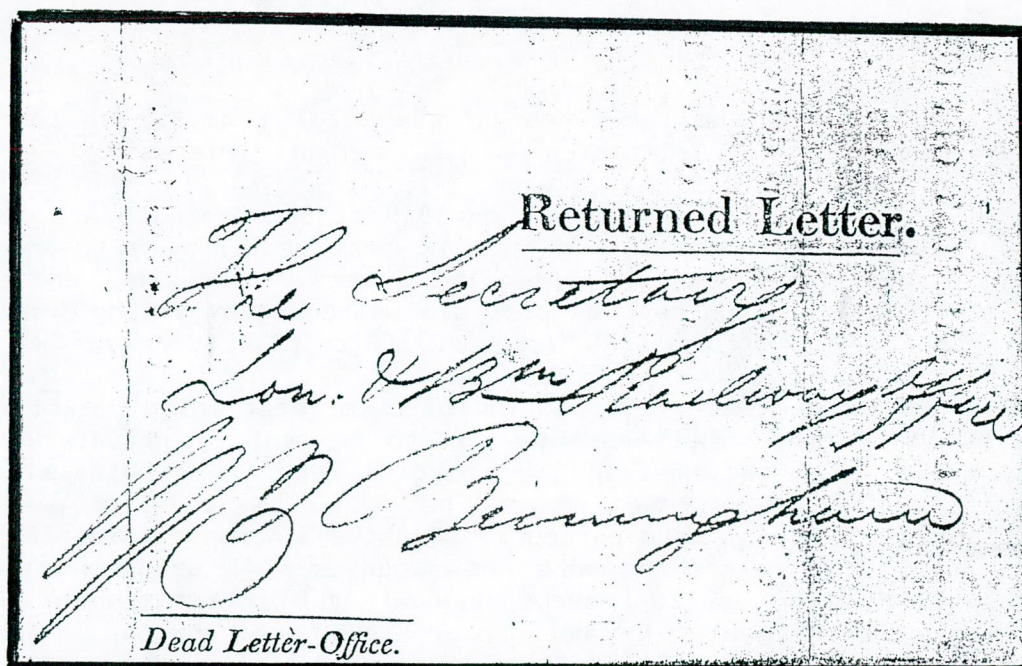 Returned Letter.
The Secretary
Lon. & Bm Railway Office
Birmingham
Dead Letter-Office.